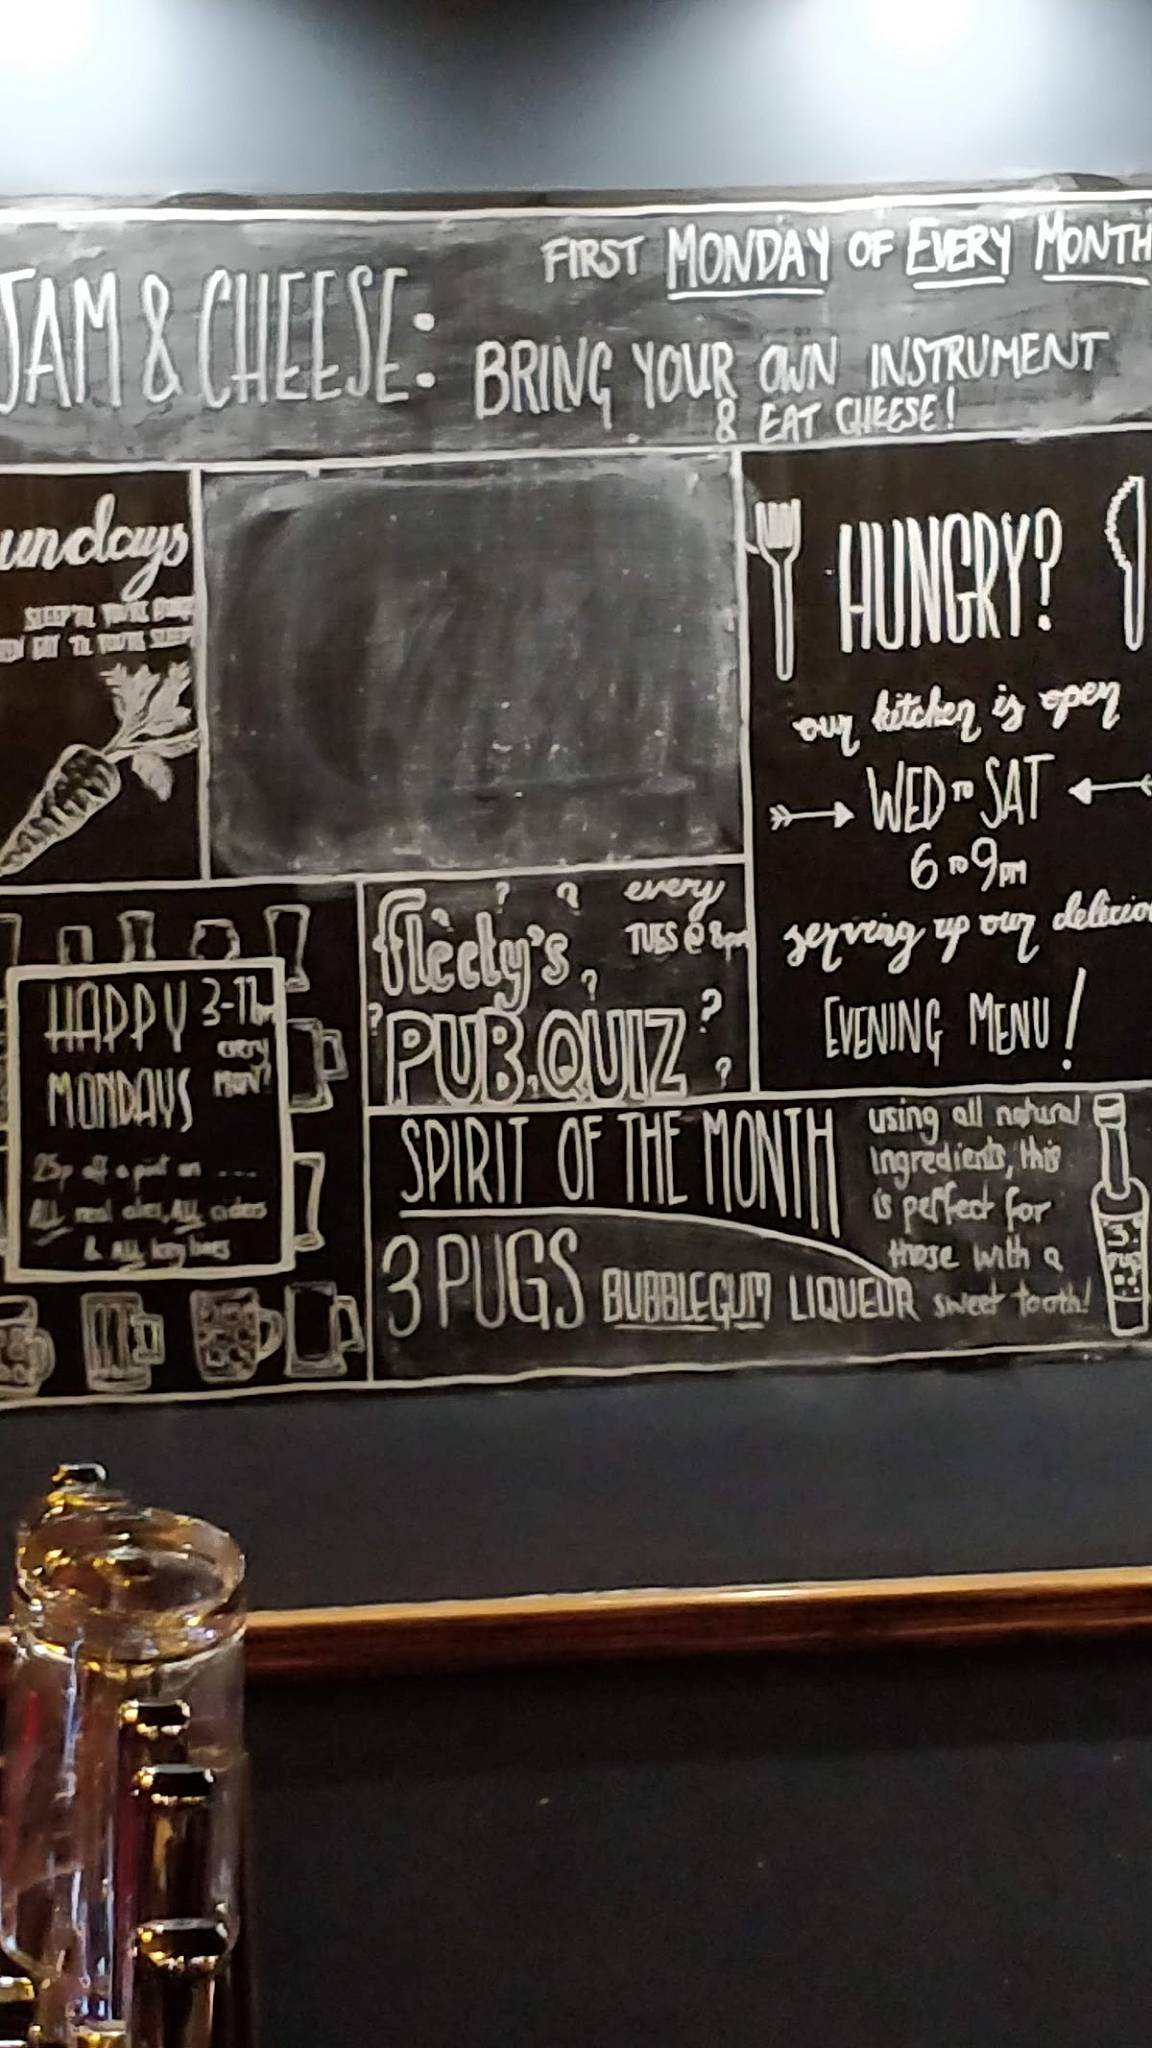 FIRST MONDAY OF EVERY MONTH
JAM & CHEESE:
BRING YOUR OWN INSTRUMENT
& EAT CHEESE!
undays
SLEEP 'TIL YOU'RE
EAT 'TIL YOU'RE
HUNGRY?
our kitchen is open
WED TO SAT
6 TO 9PM
serving up our delicio
EVENING MENU!
fleety's
every
TUES @ 8pm
PUB QUIZ
HAPPY
MONDAYS
3-11pm
every
MON?
25p off a pint on ....
ALL real ales, ALL ciders
& ALL keg lines
SPIRIT OF THE MONTH
3 PUGS BUBBLEGUM LIQUEUR
using all natural
ingredients, this
is perfect for
those with a
sweet tooth!
3
pugs